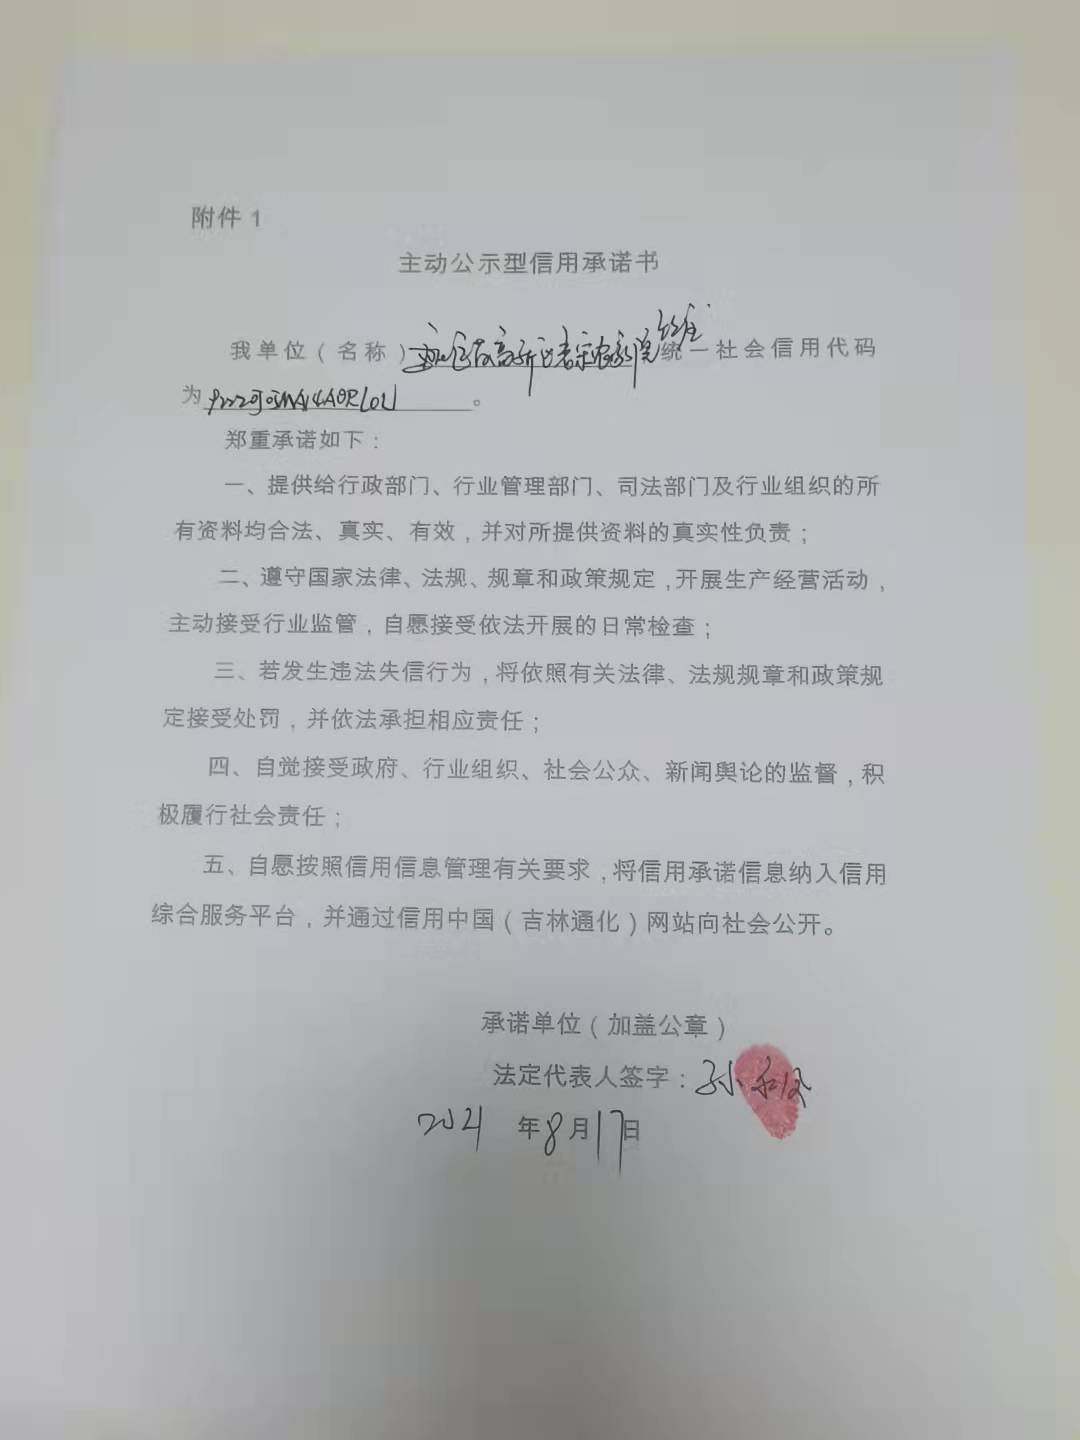 附件 1
主动公示型信用承诺书
我单位（名称）统一社会信用代码
为。
郑重承诺如下：
一、提供给行政部门、行业管理部门、司法部门及行业组织的所
有资料均合法、真实、有效，并对所提供资料的真实性负责；
二、遵守国家法律、法规、规章和政策规定，开展生产经营活动，
主动接受行业监管，自愿接受依法开展的日常检查；
三、若发生违法失信行为，将依照有关法律、法规规章和政策规
定接受处罚，并依法承担相应责任；
四、自觉接受政府、行业组织、社会公众、新闻舆论的监督，积
极履行社会责任；
五、自愿按照信用信息管理有关要求，将信用承诺信息纳入信用
综合服务平台，并通过信用中国（吉林通化）网站向社会公开。
承诺单位（加盖公章）
法定代表人签字：孙
2021 年8月17日